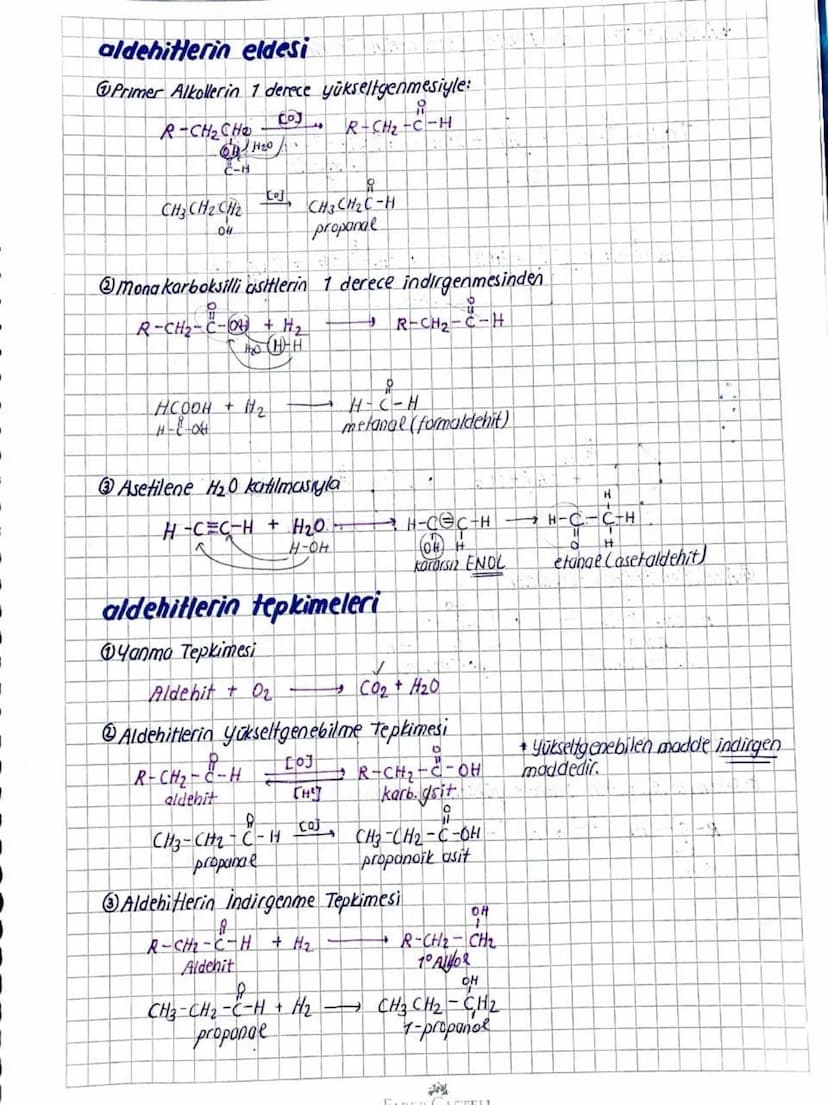 aldehitlerin eldesi
①Primer Alkollerin 1 derece yükseltgenmesiyle:
O
R-CH₂CH₂ [O] → R-CH₂-C-H
OH H₂O
C-H
O
CH₃CH₂CH₂ [O] → CH₃CH₂C-H
OH propanal
②Mona karboksilli asitlerin 1 derece indirgenmesinden
O O
R-CH₂-C-OH + H₂ → R-CH₂-C-H
H₂O H-H
O
HCOOH + H₂ → H-C-H
O
H-C-OH metanal (formaldehit)
③ Asetilene H₂O katılmasıyla
H
H-C≡C-H + H₂O → H-C=C-H → H-C-C-H
H-OH OH H O H
kararsız ENOL etanal (asetaldehit)
aldehitlerin tepkimeleri
①Yanma Tepkimesi
Aldehit + O₂ → CO₂ + H₂O
②Aldehitlerin Yükseltgenebilme Tepkimesi
O O
R-CH₂-C-H [O] R-CH₂-C-OH
aldehit karb. asit
* Yükseltgenebilen madde indirgen
maddedir.
O O
CH₃-CH₂-C-H [O] → CH₃-CH₂-C-OH
propanal propanoik asit
③Aldehitlerin İndirgenme Tepkimesi
O OH
R-CH₂-C-H + H₂ → R-CH₂-CH₂
Aldehit 1° Alkol
O OH
CH₃-CH₂-C-H + H₂ → CH₃CH₂-CH₂
propanal 1-propanol
FABER CASTELL